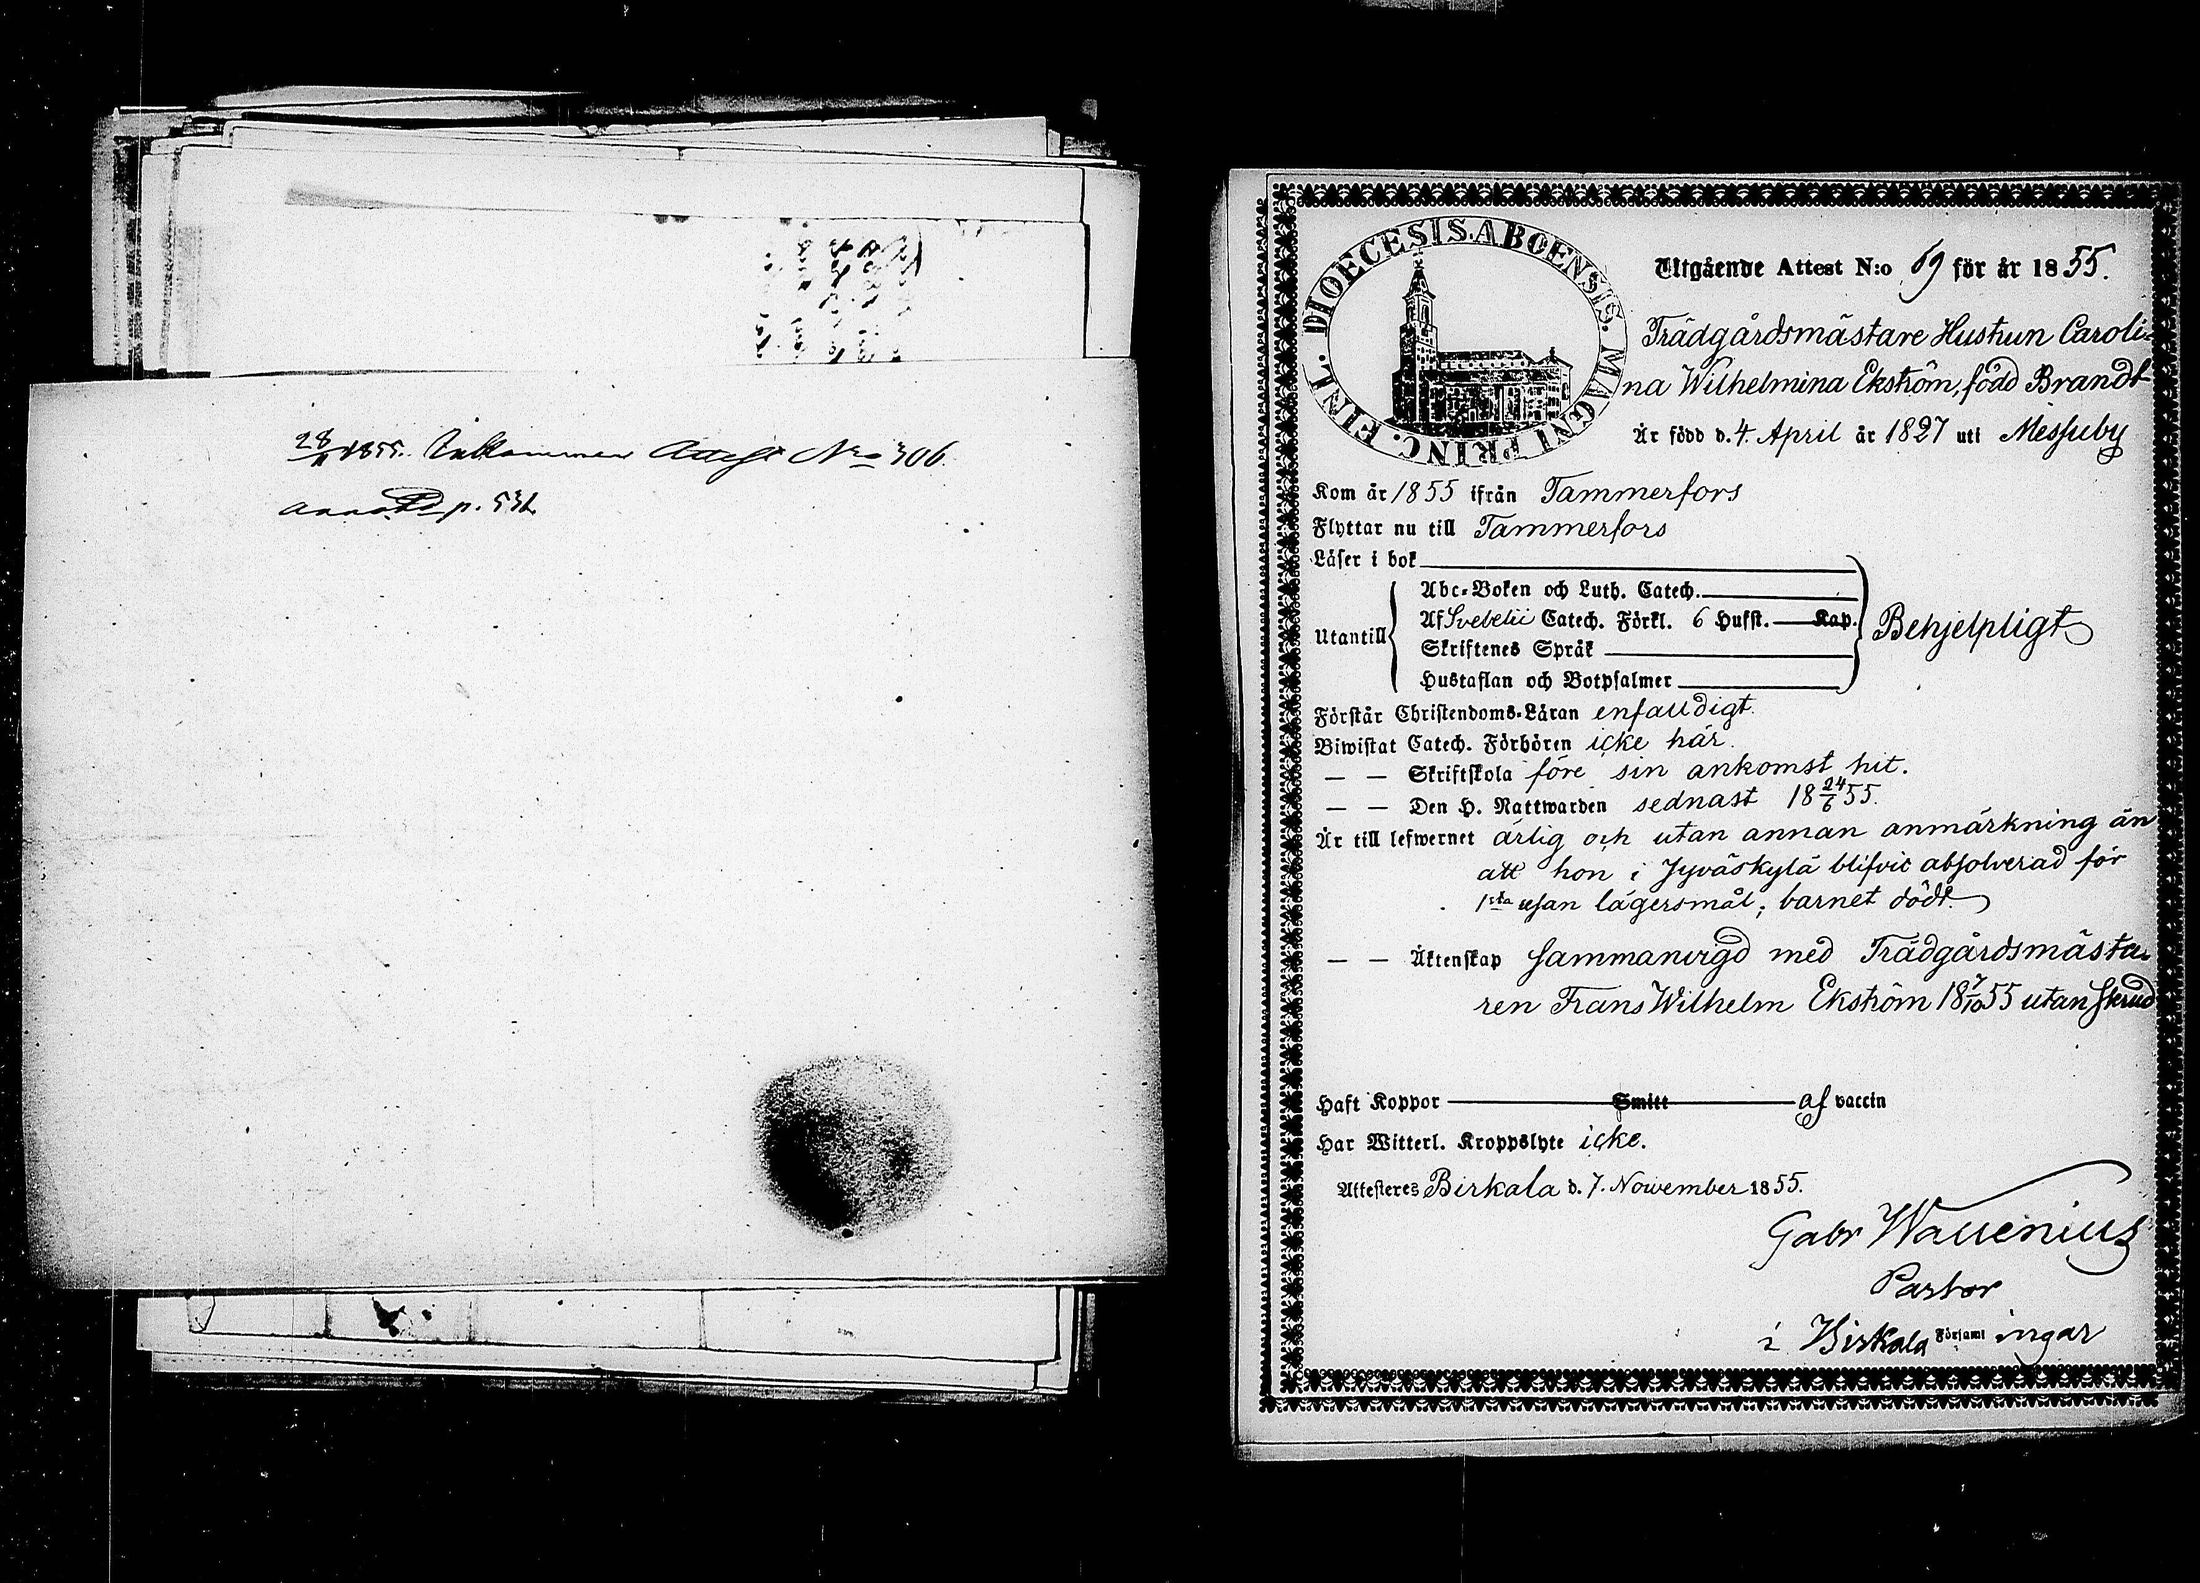 28/11 1855. Inkommen Attest No 306.
annot. p. 531.
DIOECESIS. ABOENSIS. MAGNI PRINC. FINL.
Utgående Attest N:o 69 för år 1855.
Trädgårdsmästare Hustrun Caroli-
na Wilhelmina Ekström, född Brandt
Är född d. 4. April år 1827 uti Messuby
Kom år 1855 ifrån Tammerfors
Flyttar nu till Tammerfors
Läser i bok
Abc-Boken och Luth. Catech.
Utantill Af Svebelii Catech. Förkl. 6 Hufst. Kap. Behjelpligt
Skriftenes Språk
Hustaflan och Botpsalmer
Förstår Christendoms-Läran enfaldigt.
Biwistat Catech. Förhören icke här.
— — Skriftskola före sin ankomst hit.
— — Den H. Nattwarden sednast 18 24/6 55.
Är till lefwernet ärlig och utan annan anmärkning än
att hon i Jyväskylä blifvit absolverad för
1sta resan lägersmål; barnet dödt.
— — Äktenskap Sammanvigd med Trädgårdsmästa-
ren Frans Wilhelm Ekström 18 7/10 55 utan skrud
Haft Koppor Smitt af vaccin
Har Witterl. Kroppslyte icke.
Attesteres Birkala d. 7. November 1855.
Gabr Wallenius
Pastor
i Birkala Församl ingar